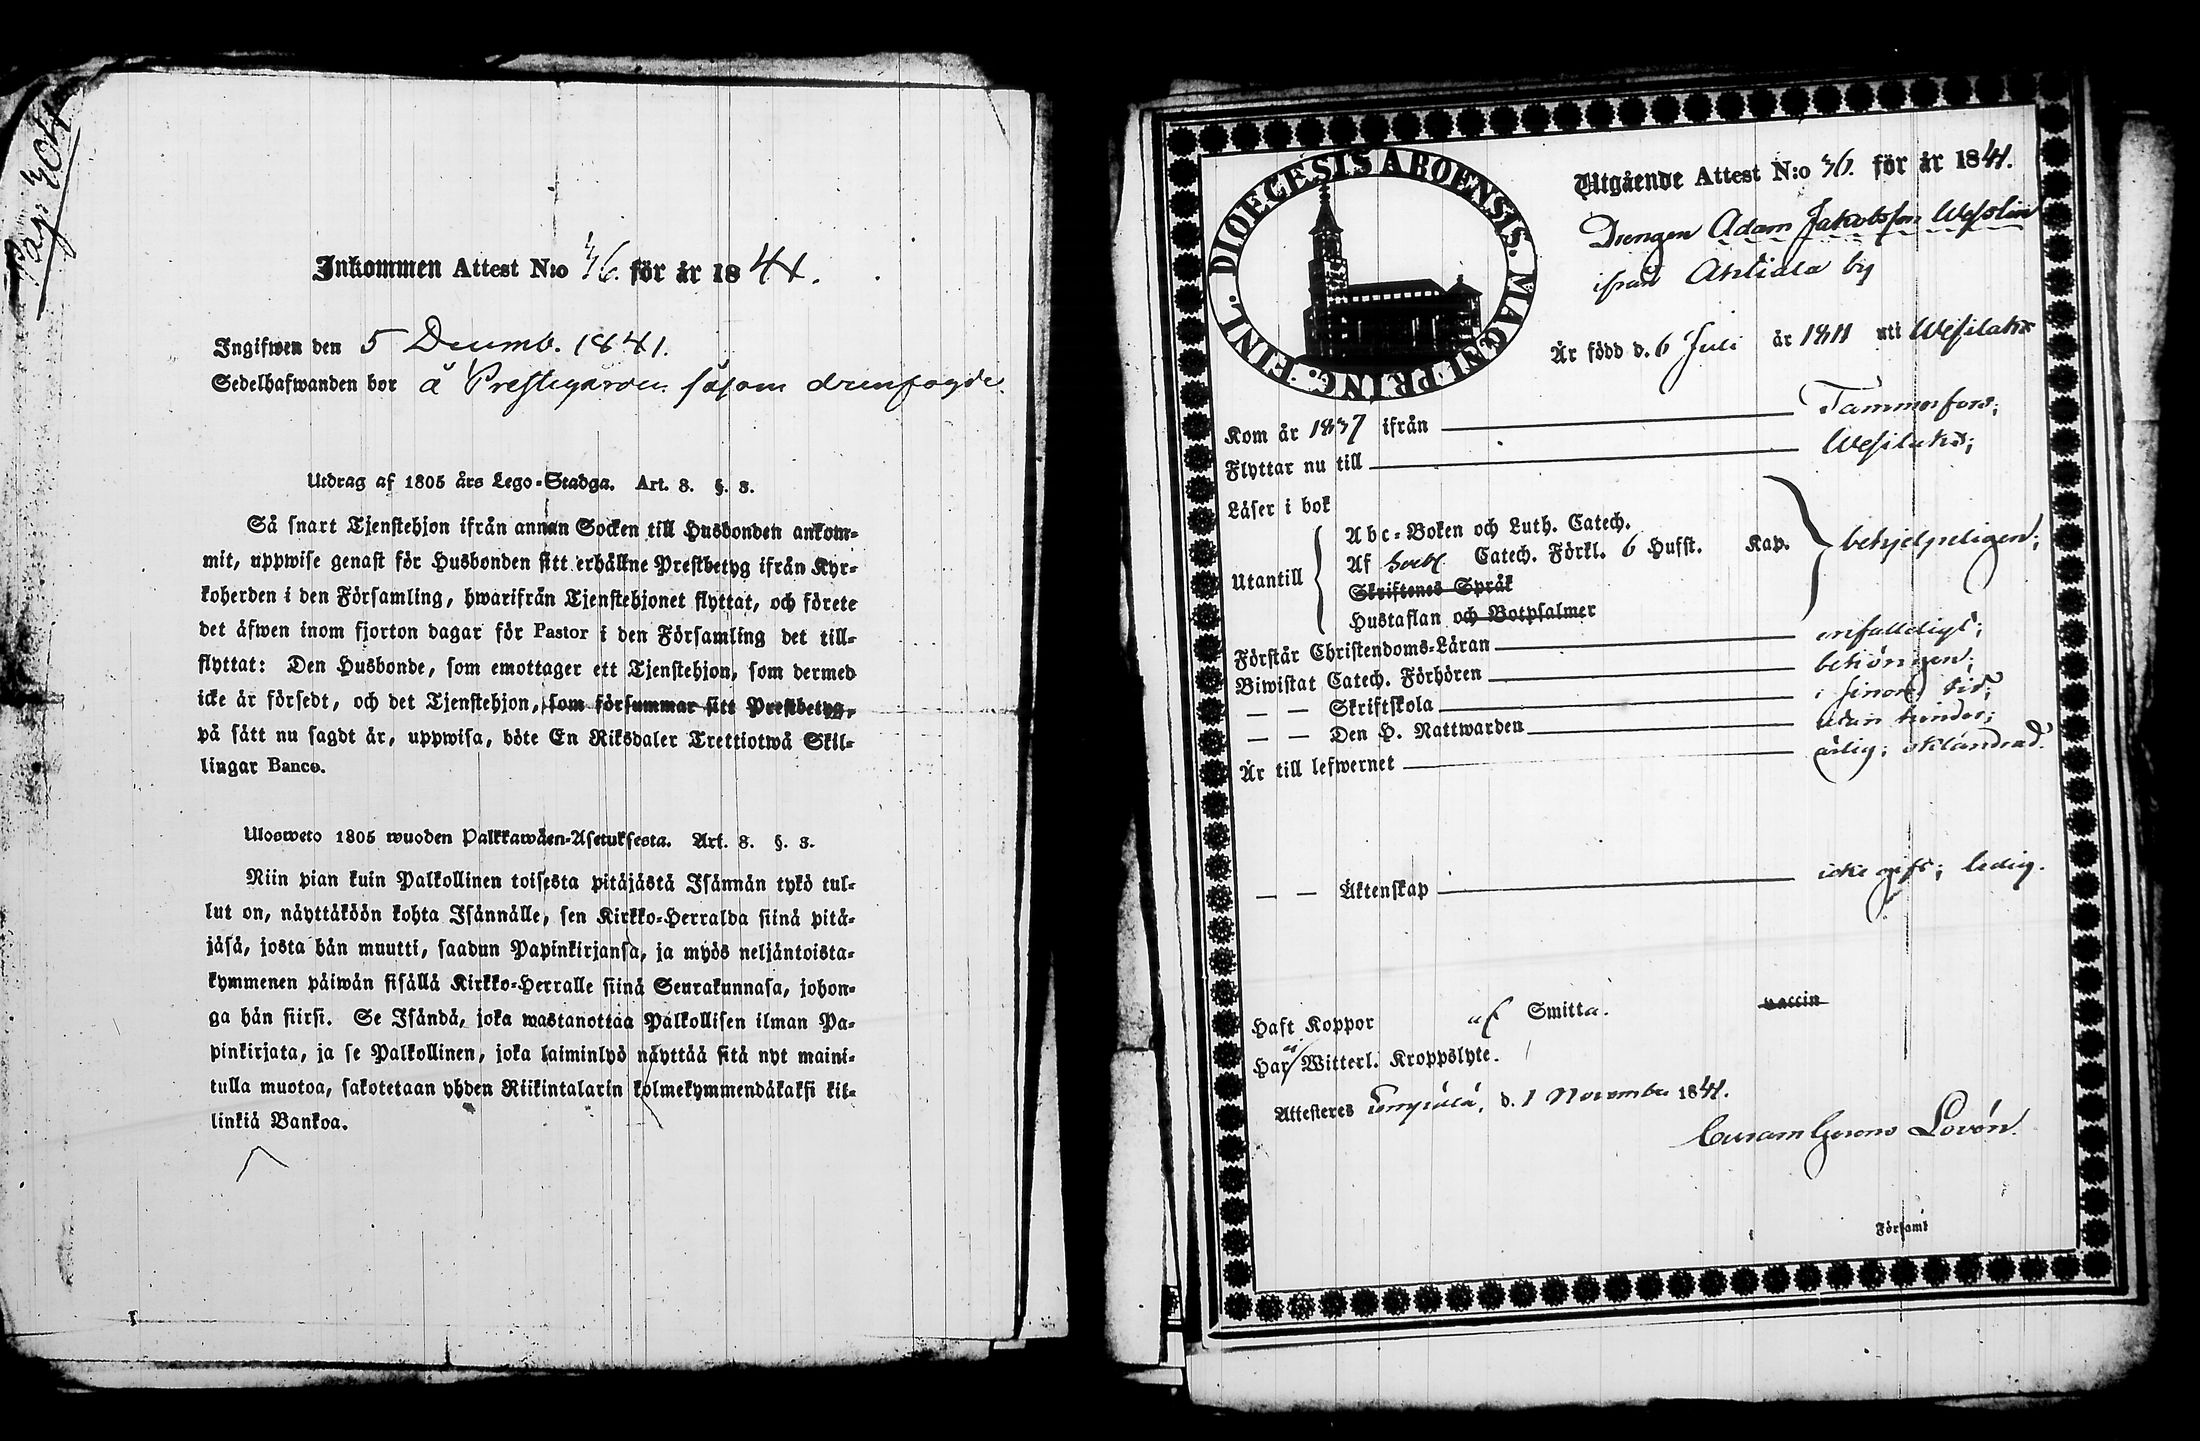 Pag. 704
Inkommen Attest N:o 36. för år 1841.
Ingifwen den 5 Decemb. 1841.
Sedelhafwanden bor å Prestegården såsom drengfogde.
Utdrag af 1805 års Lego-Stadga. Art. 3. §. 3.
Så snart Tjenstehjon ifrån annan Socken till Husbonden ankom-
mit, uppwise genast för Husbonden sitt erhållne Prestbetyg ifrån Kyr-
koherden i den Församling, hwarifrån Tjenstehjonet flyttat, och förete
det äfwen inom fjorton dagar för Pastor i den Församling det till-
flyttat: Den Husbonde, som emottager ett Tjenstehjon, som dermed
icke är försedt, och det Tjenstehjon, som försummar sitt Prestbetyg,
på sätt nu sagdt är, uppwisa, böte En Riksdaler Trettiotwå Skil-
lingar Banco.
Ulosweto 1805 wuoden Palkkawäen-Asetuksesta. Art. 3. §. 3.
Niin pian kuin Palkollinen toisesta pitäjästä Isännän tykö tul-
lut on, näyttäköön kohta Isännälle, sen Kirkko-Herralda siinä pitä-
jäsä, josta hän muutti, saadun Papinkirjansa, ja myös neljäntoista-
kymmenen päiwän sisällä Kirkko-Herralle siinä Seurakunnasa, johon-
ga hän siirsi. Se Isändä, joka wastanottaa Palkollisen ilman Pa-
pinkirjata, ja se Palkollinen, joka laiminlyö näyttää sitä nyt maini-
tulla muotoa, sakotetaan yhden Riikintalarin kolmekymmendäkaksi kil-
linkiä Bankoa.
DIOECESIS ABOENSIS. MAGNI PRINC. FINL.
Utgående Attest N:o 36. för år 1841.
Drengen Adam Jakobsson Wesslin
ifrån Ahtiala by
Är född d. 6 Juli år 1811 uti Wesilaks
Kom år 1837 ifrån Tammerfors;
Flyttar nu till Wesilaks;
Läser i bok
Utantill
Abc-Boken och Luth. Catech.
Af Catech. Förkl. 6 Hufst. Kap. behjelpeligen;
Skriftenes Språk
Hustaflan och Botpsalmer
Förstår Christendoms-Läran enfalldigt;
Biwistat Catech. Förhören behörigen;
— — Skriftskola i sinom tid;
— — Den H. Nattwarden utan hinder;
Är till lefwernet ärlig; oklandrad.
— — Äktenskap icke gift; ledig.
Haft Koppor af Smitta. vaccin
Har ej Witterl. Kroppslyte.
Attesteras Lempälä, d. 1 November 1841.
Curam Gerens Lovén.
Församl